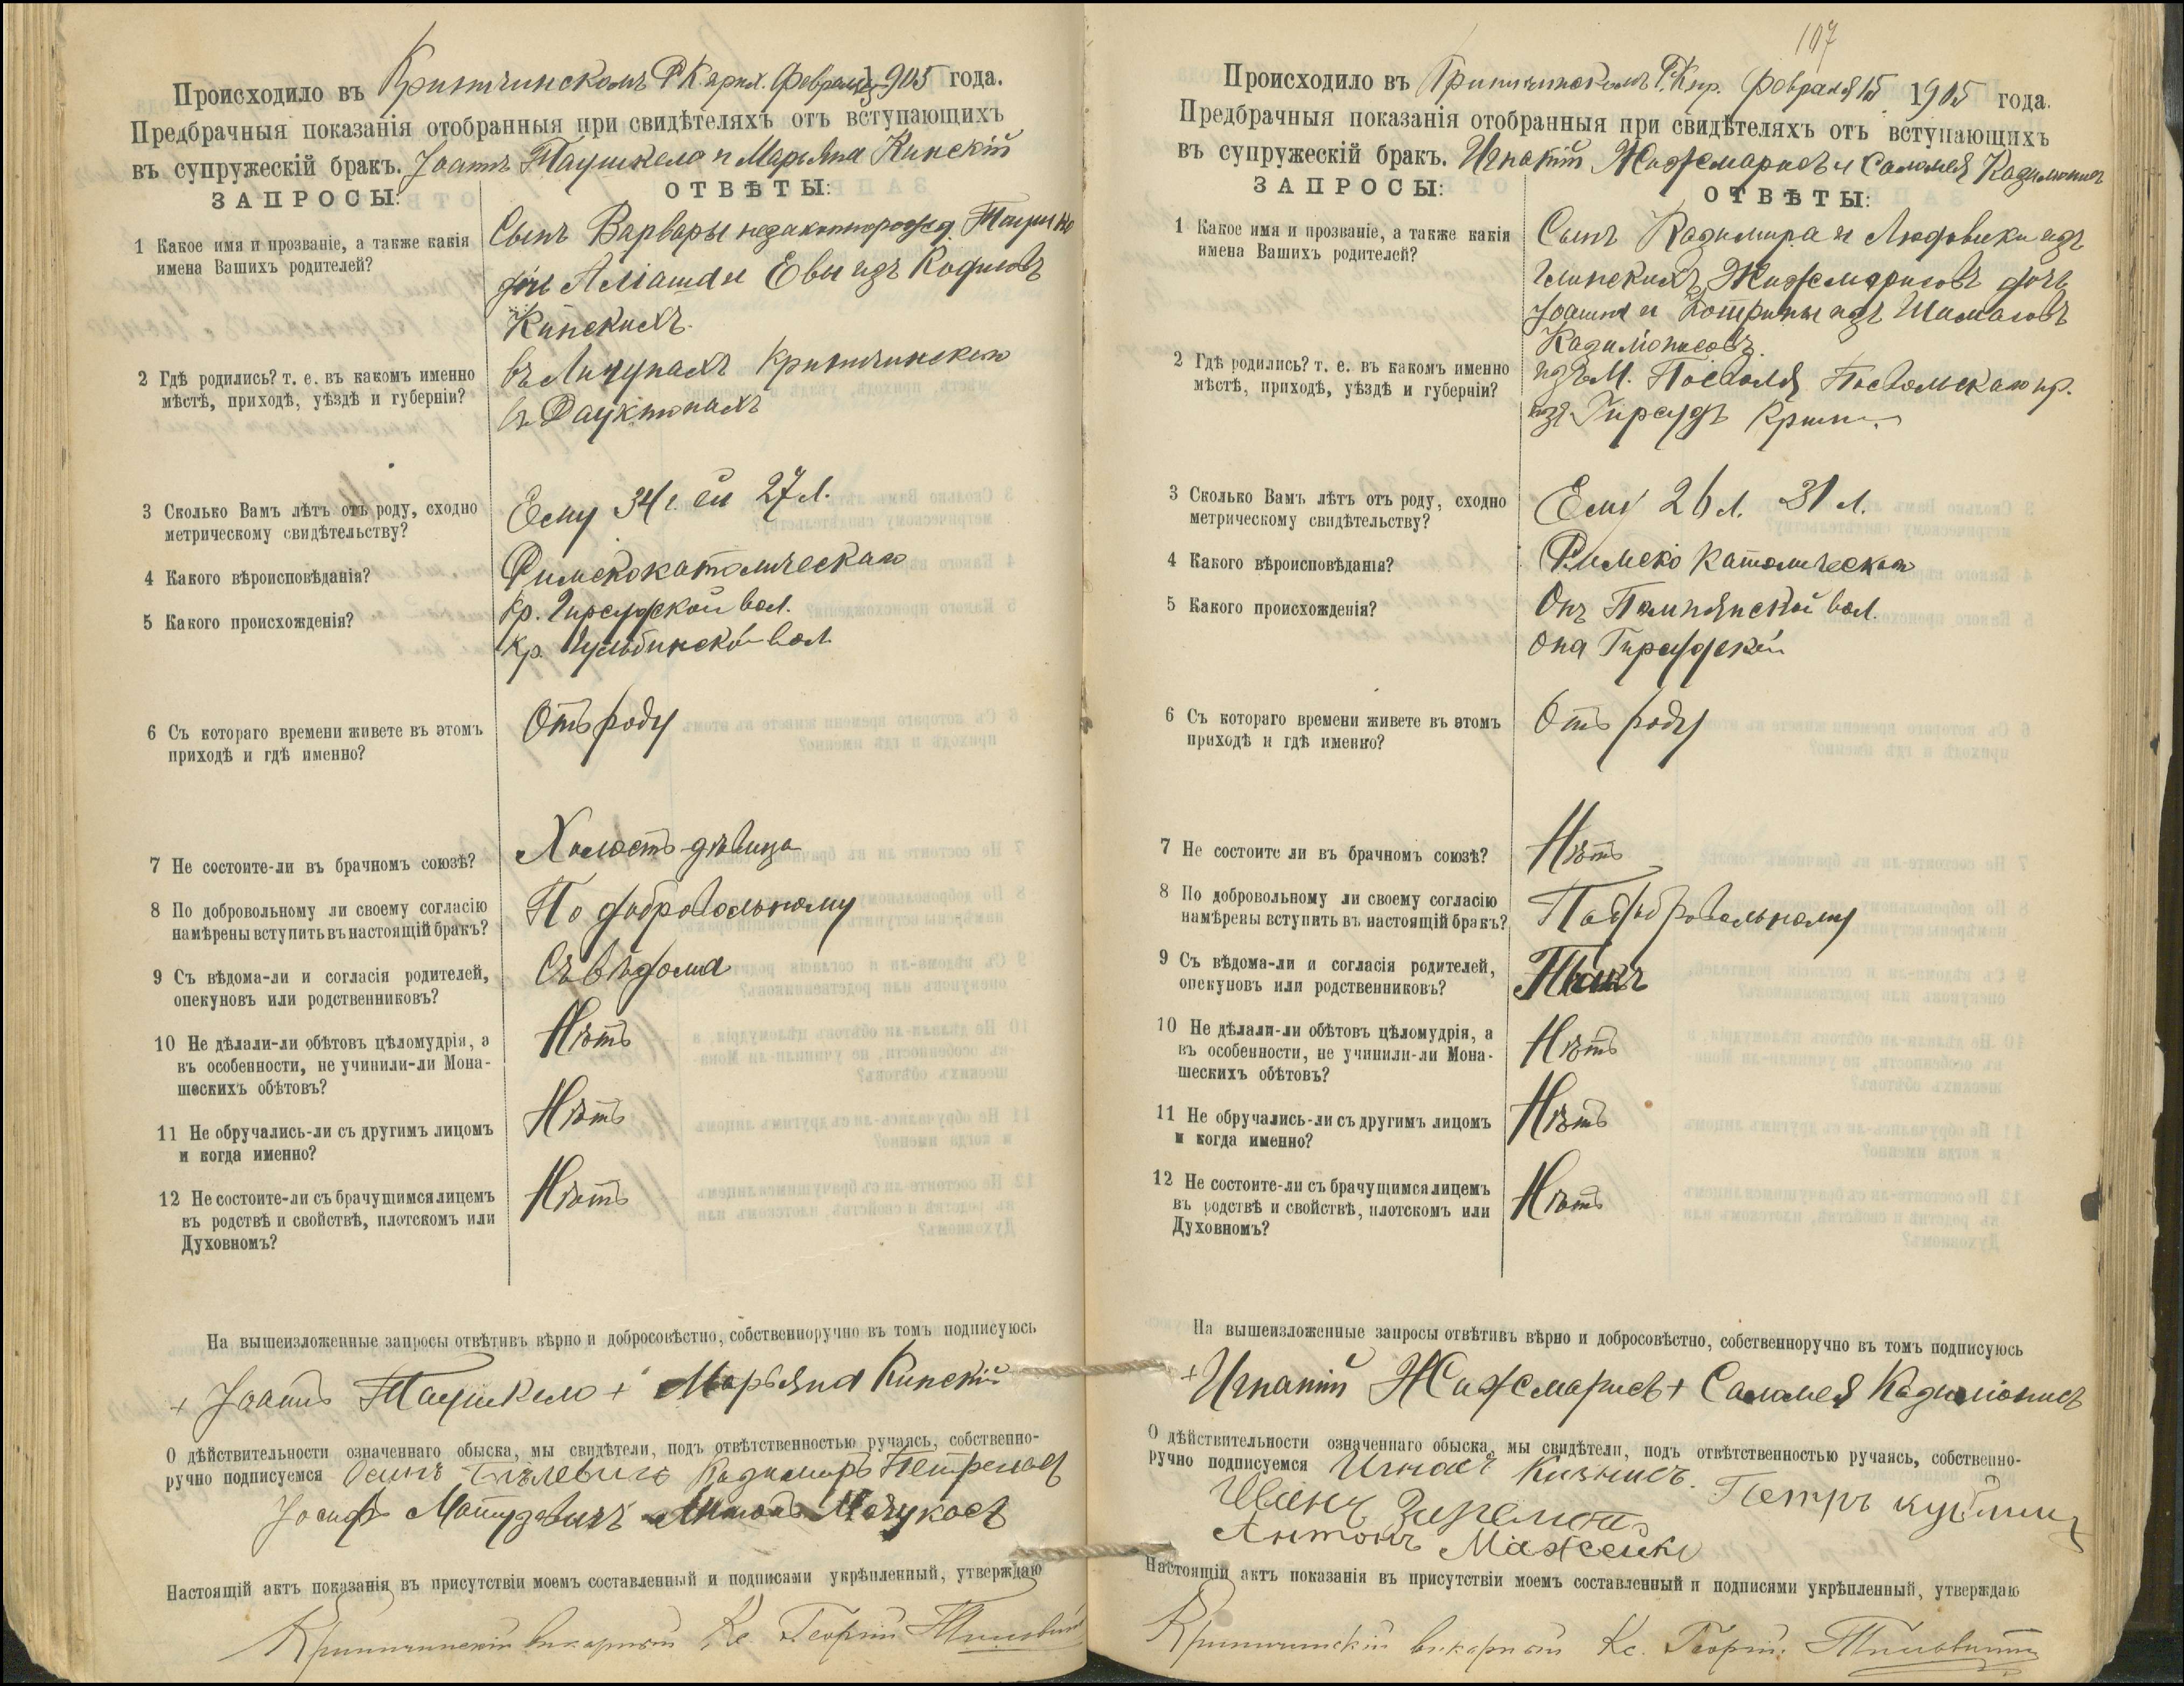 Происходило въ Криптчинскомъ РК. прих. Февраля 1905 года.
Предбрачныя показанія отобранныя при свидѣтеляхъ отъ вступающихъ
въ супружескій бракъ. Іоаннъ Таушкело и Марьяна Кинскій
ЗАПРОСЫ:
ОТВѢТЫ:
1 Какое имя и прозваніе, а также какія
имена Вашихъ родителей?
Сынъ Варвары незаконнорожд
дочь и Евы изъ
Кинскихъ.
2 Гдѣ родились? т. е. въ какомъ именно
мѣстѣ, приходѣ, уѣздѣ и губерніи?
въ
въ
3 Сколько Вамъ лѣтъ отъ роду, сходно
метрическому свидѣтельству?
Ему 34 г. ей 27 л.
4 Какого вѣроисповѣданія?
Римскокатолическаго
5 Какого происхожденія?
кр. Гирсудской вол.
кр. вол.
6 Съ котораго времени живете въ этомъ
приходѣ и гдѣ именно?
Отъ роду
7 Не состоите-ли въ брачномъ союзѣ?
Холостъ дѣвица
8 По добровольному ли своему согласію
намѣрены вступить въ настоящій бракъ?
По добровольному
9 Съ вѣдома-ли и согласія родителей,
опекуновъ или родственниковъ?
Съ вѣдома
10 Не дѣлали-ли обѣтовъ цѣломудрія, а
въ особенности, не учинили-ли Мона-
шескихъ обѣтовъ?
Нѣтъ
11 Не обручались-ли съ другимъ лицомъ
и когда именно?
Нѣтъ
12 Не состоите-ли съ брачущимся лицемъ
въ родствѣ и свойствѣ, плотскомъ или
Духовномъ?
Нѣтъ
На вышеизложенные запросы отвѣтивъ вѣрно и добросовѣстно, собственноручно въ томъ подписуюсь
+ Іоаннъ Таушкело + Марьяна Кинскій
О дѣйствительности означеннаго обыска, мы свидѣтели, подъ отвѣтственностью ручаясь, собственно-
ручно подписуемся Казимиръ
Іосифъ Антонъ
Настоящій актъ показанія въ присутствіи моемъ составленный и подписями укрѣпленный, утверждаю
викарный Кс. Георгій
107
Происходило въ Р. К. пр. Февраля 15 1905 года.
Предбрачныя показанія отобранныя при свидѣтеляхъ отъ вступающихъ
въ супружескій бракъ. Игнатій Жижемарисъ и Саломея Казиліонисъ
ЗАПРОСЫ:
ОТВѢТЫ:
1 Какое имя и прозваніе, а также какія
имена Вашихъ родителей?
Сынъ Казимира и Людовики изъ
Жижемарисовъ дочь
Іоанна и изъ
2 Гдѣ родились? т. е. въ какомъ именно
мѣстѣ, приходѣ, уѣздѣ и губерніи?
изъ М. Посволя Посвольскаго пр.
изъ Гирсудъ
3 Сколько Вамъ лѣтъ отъ роду, сходно
метрическому свидѣтельству?
Ему 26 л. 31 л.
4 Какого вѣроисповѣданія?
Римско католическаго
5 Какого происхожденія?
Онъ Помпянской вол.
Она Гирсудской
6 Съ котораго времени живете въ этомъ
приходѣ и гдѣ именно?
Отъ роду
7 Не состоите ли въ брачномъ союзѣ?
Нѣтъ
8 По добровольному ли своему согласію
намѣрены вступить въ настоящій бракъ?
По добровольному
9 Съ вѣдома-ли и согласія родителей,
опекуновъ или родственниковъ?
10 Не дѣлали-ли обѣтовъ цѣломудрія, а
въ особенности, не учинили-ли Мона-
шескихъ обѣтовъ?
Нѣтъ
11 Не обручались-ли съ другимъ лицомъ
и когда именно?
Нѣтъ
12 Не состоите-ли съ брачущимся лицемъ
въ родствѣ и свойствѣ, плотскомъ или
Духовномъ?
Нѣтъ
На вышеизложенные запросы отвѣтивъ вѣрно и добросовѣстно, собственноручно въ томъ подписуюсь
+ Игнатій Жижемарисъ + Саломея Казиліонисъ
О дѣйствительности означеннаго обыска, мы свидѣтели, подъ отвѣтственностью ручаясь, собственно-
ручно подписуемся Игнацъ
Иванъ Петръ
Антонъ Мажейка
Настоящій актъ показанія въ присутствіи моемъ составленный и подписями укрѣпленный, утверждаю
викарный Кс. Георгій